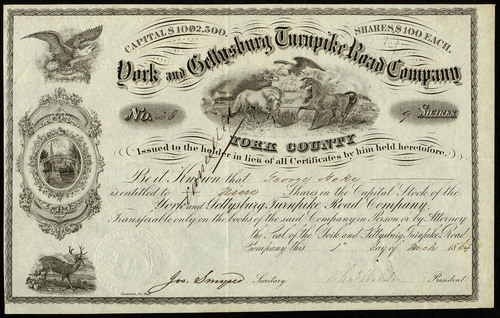 CAPITAL $1002,500. SHARES, $100 EACH.
York and Gettysburg Turnpike Road Company
No. 28 9 Shares
YORK COUNTY
Issued to the holder in lieu of all Certificates by him held heretofore.
Be it Known that George Hoke
is entitled to Nine Shares in the Capital Stock of the
York and Gettysburg Turnpike Road Company.
Transferable only on the books of the said Company in Person or by Attorney
the Seal of the York and Gettysburg Turnpike Road
Company this day of March 18
Jos. Smyser Secretary President